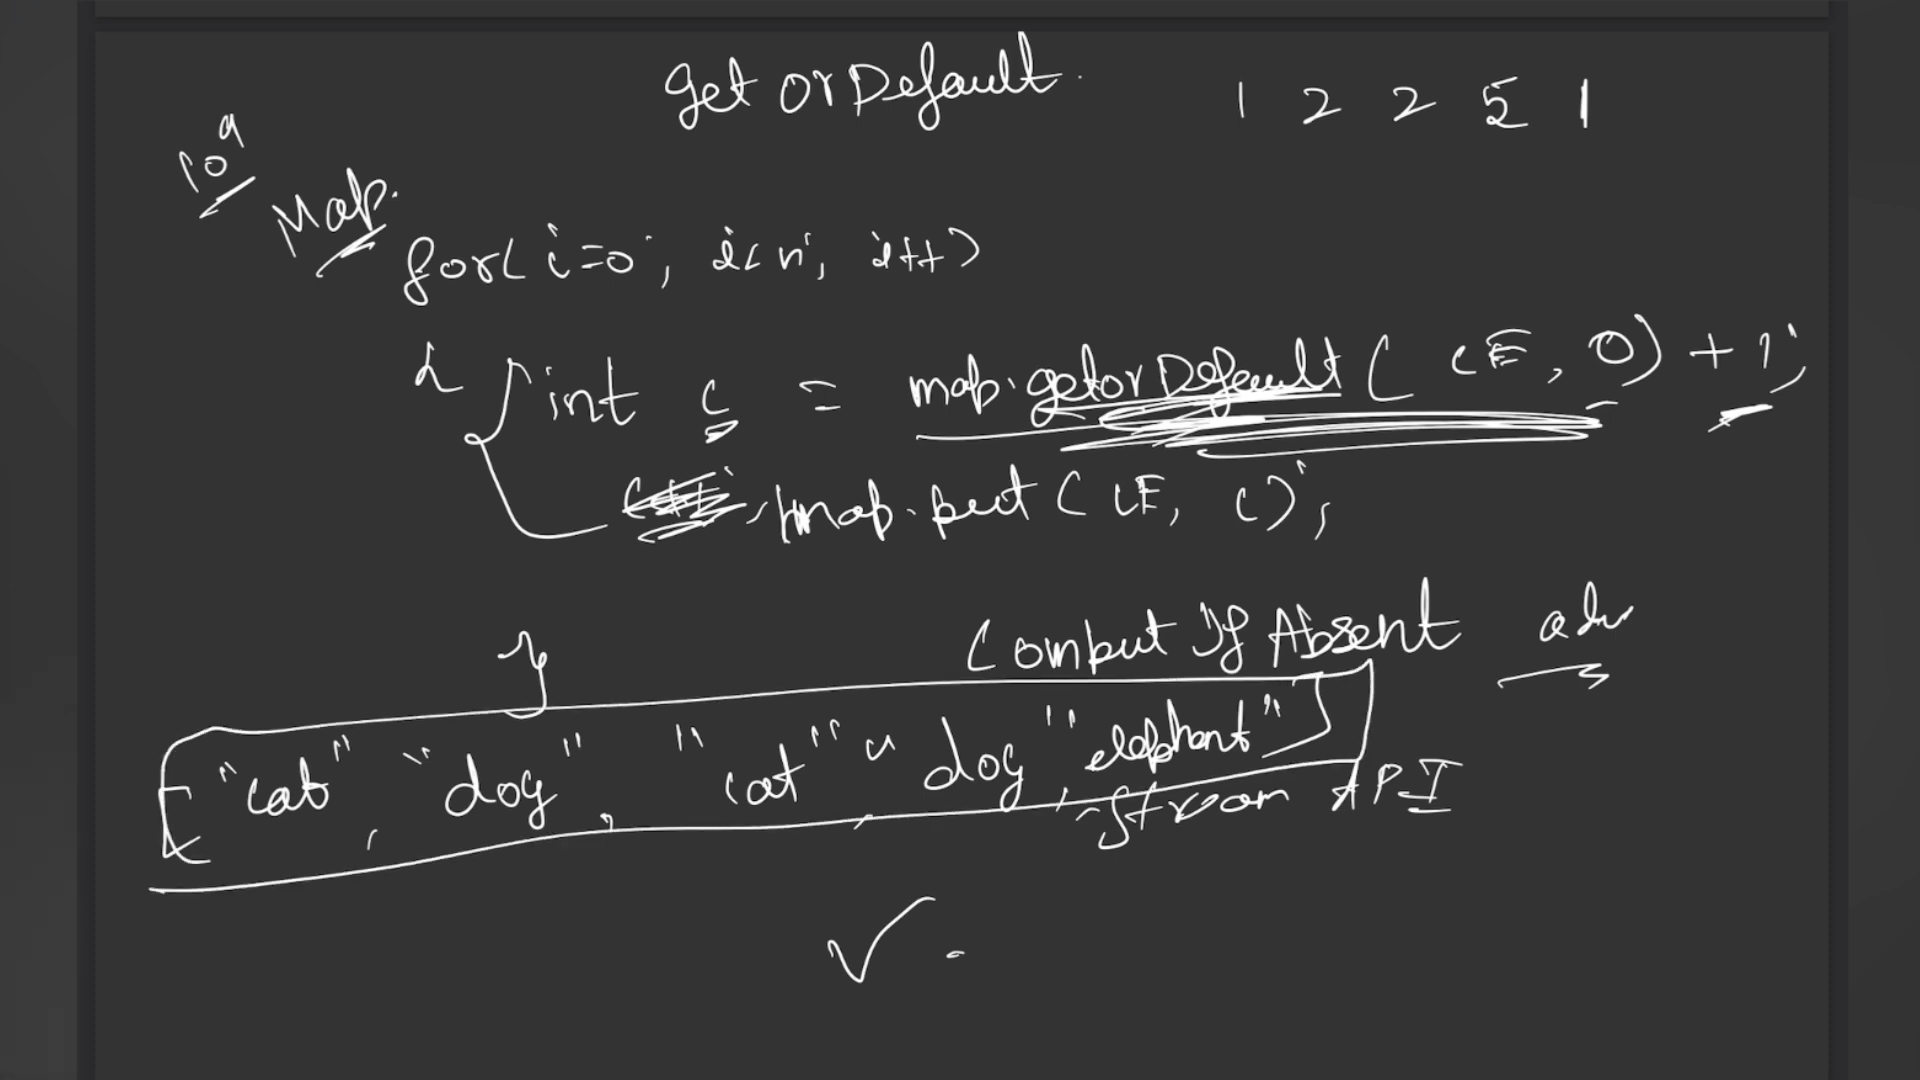 get or Default. 1 2 2 5 1
10^9
Map.
for( i=0; i<n; i++)
{
int c = map.getorDefault( CE, 0) + 1;
map.put( CE, C);
}
Comput If Absent adv
["cat", "dog", "cat", "dog", "elephant"]
Stream API